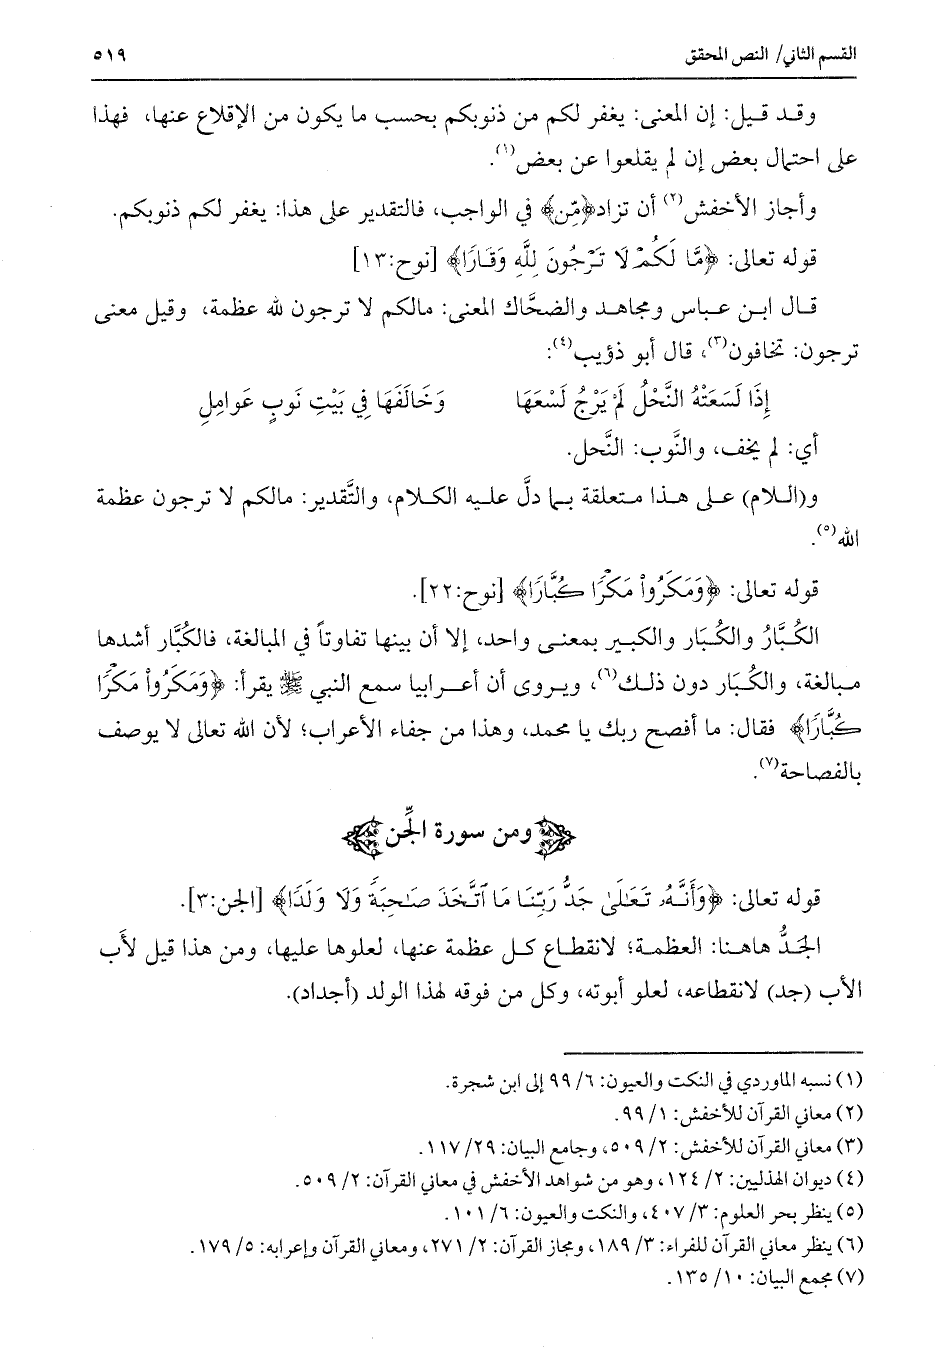 القسم الثاني/ النص المحقق ٥١٩
وقد قيل: إن المعنى: يغفر لكم من ذنوبكم بحسب ما يكون من الإقلاع عنها، فهذا
على احتمال بعض إن لم يقلعوا عن بعض(١).
وأجاز الأخفش(٢) أن تزاد ﴿مِّن﴾ في الواجب، فالتقدير على هذا: يغفر لكم ذنوبكم.
قوله تعالى: ﴿مَّا لَكُمْ لَا تَرْجُونَ لِلَّهِ وَقَارًا﴾ [نوح:١٣]
قال ابن عباس ومجاهد والضحَّاك المعنى: مالكم لا ترجون لله عظمة، وقيل معنى
ترجون: تخافون(٣)، قال أبو ذؤيب(٤):
إِذَا لَسَعَتْهُ النَّحْلُ لَمْ يَرْجُ لَسْعَهَا وَخَالَفَهَا فِي بَيْتِ نَوبٍ عَوامِلِ
أي: لم يخف، والنَّوب: النَّحل.
و(اللام) على هذا متعلقة بما دلَّ عليه الكلام، والتَّقدير: مالكم لا ترجون عظمة
الله(٥).
قوله تعالى: ﴿وَمَكَرُواْ مَكْرًا كُبَّارًا﴾ [نوح:٢٢].
الكُبَّارُ والكُبَار والكبير بمعنى واحد، إلا أن بينها تفاوتاً في المبالغة، فالكُبَّار أشدها
مبالغة، والكُبَار دون ذلك(٦)، ويروى أن أعرابيا سمع النبي ﷺ يقرأ: ﴿وَمَكَرُواْ مَكْرًا
كُبَّارًا﴾ فقال: ما أفصح ربك يا محمد، وهذا من جفاء الأعراب؛ لأن الله تعالى لا يوصف
بالفصاحة(٧).
ومن سورة الجِّن
قوله تعالى: ﴿وَأَنَّهُۥ تَعَـٰلَىٰ جَدُّ رَبِّنَا مَا ٱتَّخَذَ صَـٰحِبَةً وَلَا وَلَدًا﴾ [الجن:٣].
الجَدُّ هاهنا: العظمة؛ لانقطاع كل عظمة عنها، لعلوها عليها، ومن هذا قيل لأَب
الأب (جد) لانقطاعه، لعلو أبوته، وكل من فوقه لهذا الولد (أجداد).
(١) نسبه الماوردي في النكت والعيون: ٦/ ٩٩ إلى ابن شجرة.
(٢) معاني القرآن للأخفش: ١/ ٩٩.
(٣) معاني القرآن للأخفش: ٢/ ٥٠٩، وجامع البيان: ٢٩/ ١١٧.
(٤) ديوان الهذليين: ٢/ ١٢٤، وهو من شواهد الأخفش في معاني القرآن: ٢/ ٥٠٩.
(٥) ينظر بحر العلوم: ٣/ ٤٠٧، والنكت والعيون: ٦/ ١٠١.
(٦) ينظر معاني القرآن للفراء: ٣/ ١٨٩، ومجاز القرآن: ٢/ ٢٧١، ومعاني القرآن وإعرابه: ٥/ ١٧٩.
(٧) مجمع البيان: ١٠/ ١٣٥.